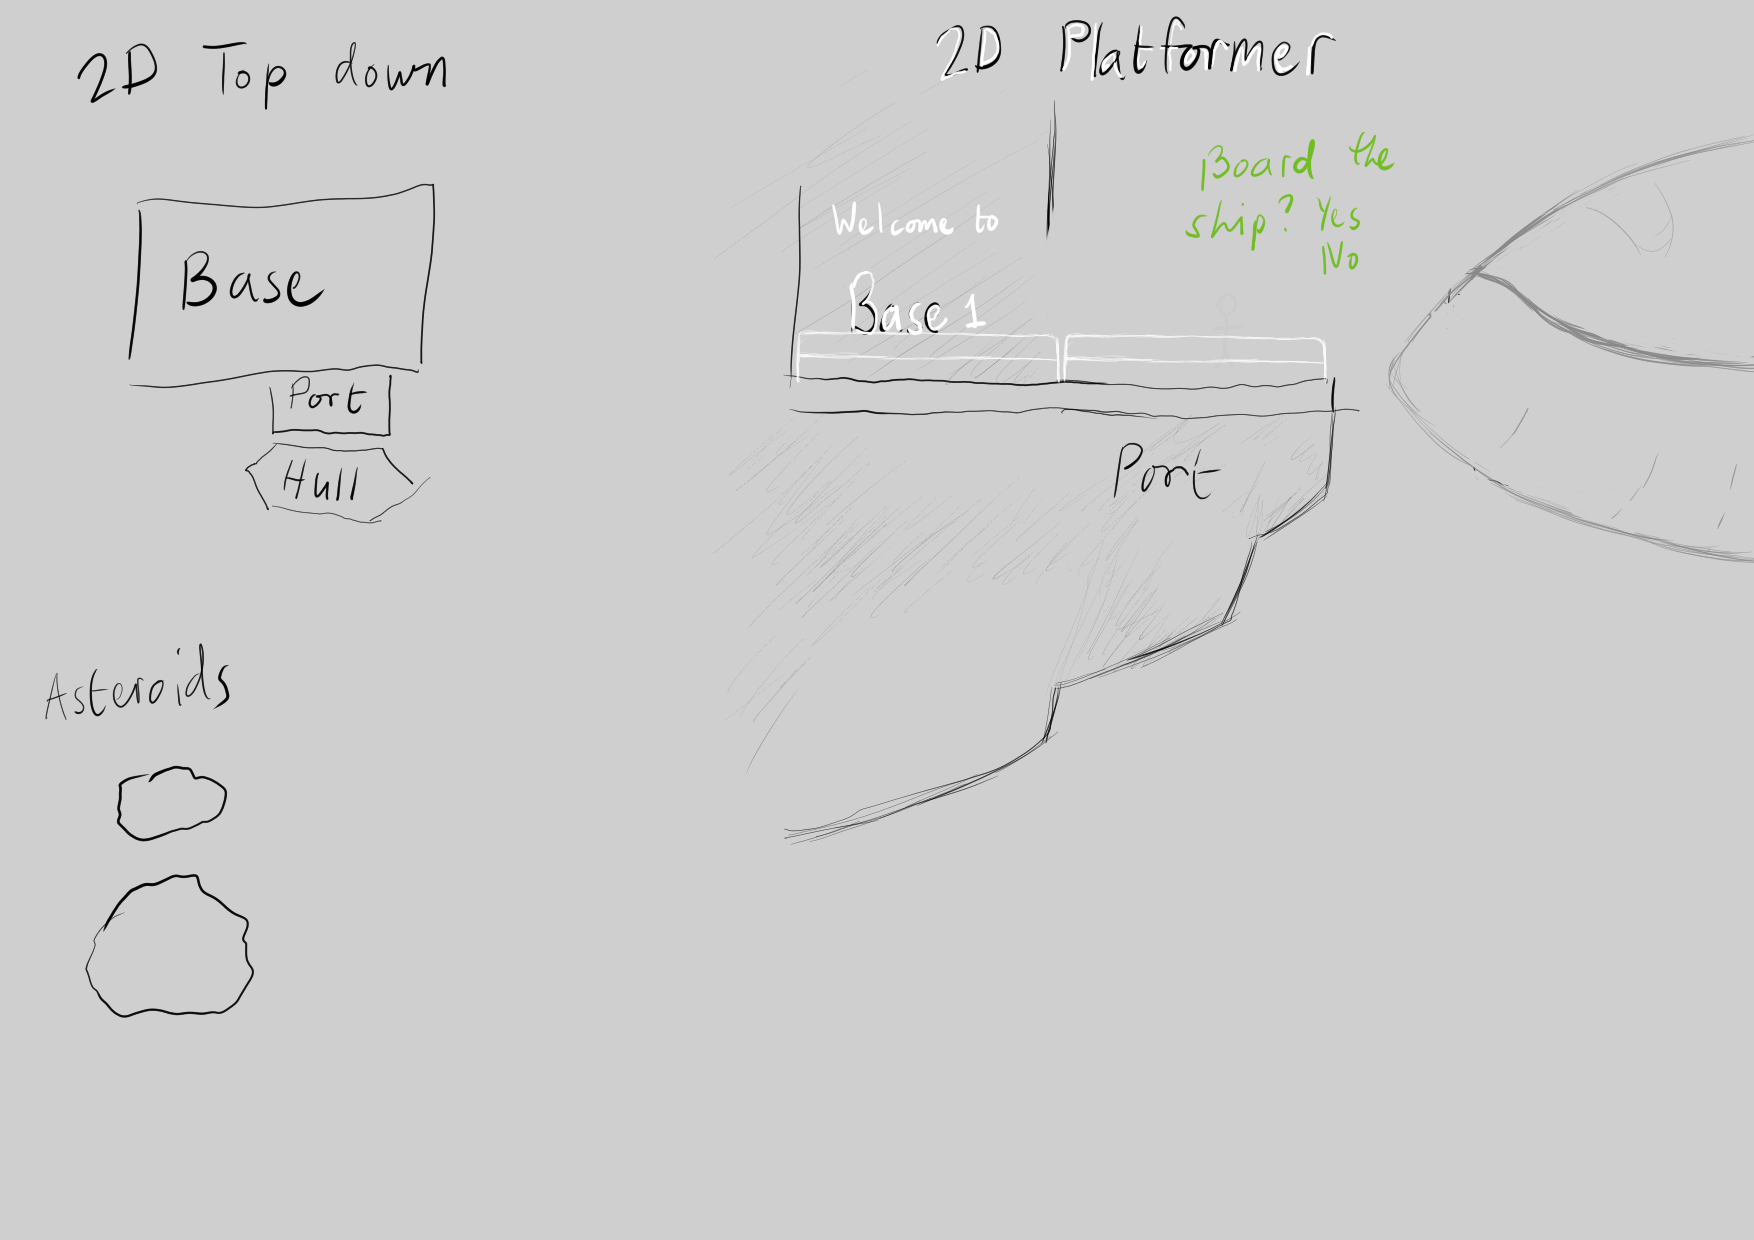 2D Top down
Base
Port
Hull
Asteroids
2D Platformer
Welcome to
Base 1
Board the
ship? Yes
No
Port